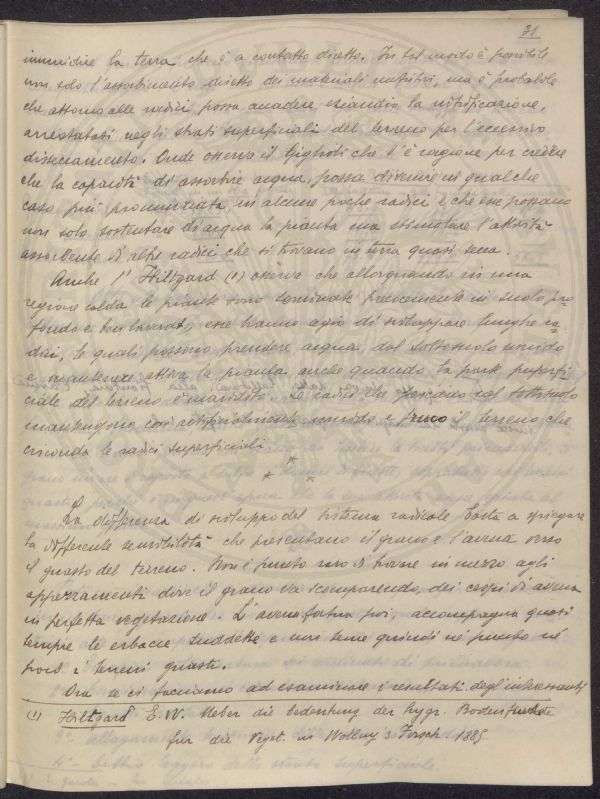 31
inumidire la terra che è a contatto diretto. In tal modo è possibile
non solo l'assorbimento diretto dei materiali nutritivi, ma è probabile
che attorno alle radici possa accadere eziandio la nitrificazione,
arrestatasi negli strati superficiali del terreno per l'eccessivo
disseccamento. Onde osserva il Giglioli che v'è ragione per credere
che la capacità di assorbire acqua, possa divenire in qualche
caso più pronunziata, in alcune poche radici e che esse possano
non solo sostentare di acqua la pianta ma stimolare l'attività
assorbente di altre radici che si trovano in terra quasi secca.
Anche l' Hiltgard (1) osserva che allorquando in una
regione calda le piante sono seminate precocemente in suolo pro=
fondo e ben lavorato, esse hanno agio di sviluppare lunghe ra=
dici, le quali possono prendere acqua dal sottosuolo umido
e mantenere attiva la pianta anche quando la parte superfi=
ciale del terreno è inaridita. Le radici che pescano nel sottosuolo
mantengono così artificialmente umido e fresco il terreno che
circonda le radici superficiali.
* * *
La differenza di sviluppo del sistema radicale basta a spiegare
la differente sensibilità che presentano il grano e l'avena verso
il guasto del terreno. Non è punto raro di trovare in mezzo agli
appezzamenti dove il grano va scomparendo, dei cespi d'avena
in perfetta vegetazione. L'avena fatua poi, accompagna quasi
sempre le erbacce suddette e non teme quindi nè punto nè
poco i terreni guasti.
Ora se ci facciamo ad esaminare i resultati degli interessanti
(1) Hiltgard E. W. Ueber die bedentung der hygr. Bodenfeuchte
fur die Veget. in Wollny's Forsch. 1885